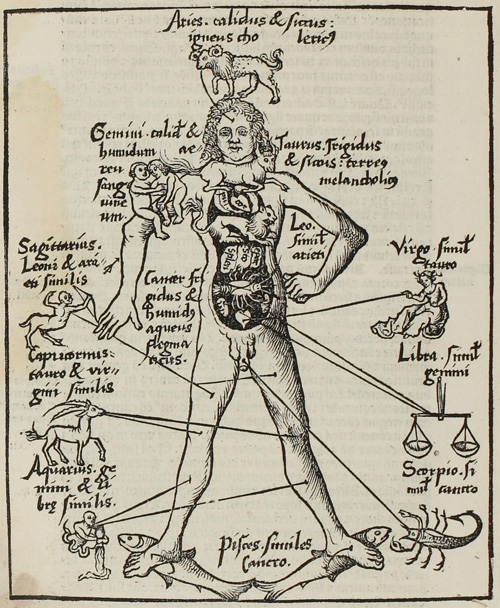 Aries. calidus & siccus:
igneus cho lericꝰ
Gemini. calid᷒ &
humidum ae
reu
sang
uine
um.
Taurus. frigidus
& siccus: terreꝰ
melancholicꝰ
Leo.
simil᷒
arieti
Sagittarius.
Leoni & ari
eti similis
Cancer fri
gidus &
humidꝰ
aqueus
flegma
ticus.
Virgo. simil᷒
tauro
Libra. simil᷒
gemini
Capricornus.
tauro & vir-
gini similis
Aquarius. ge
mini & li
bre similis.
Scorpio. si
mil᷒ cancro
Pisces. similes
cancro.